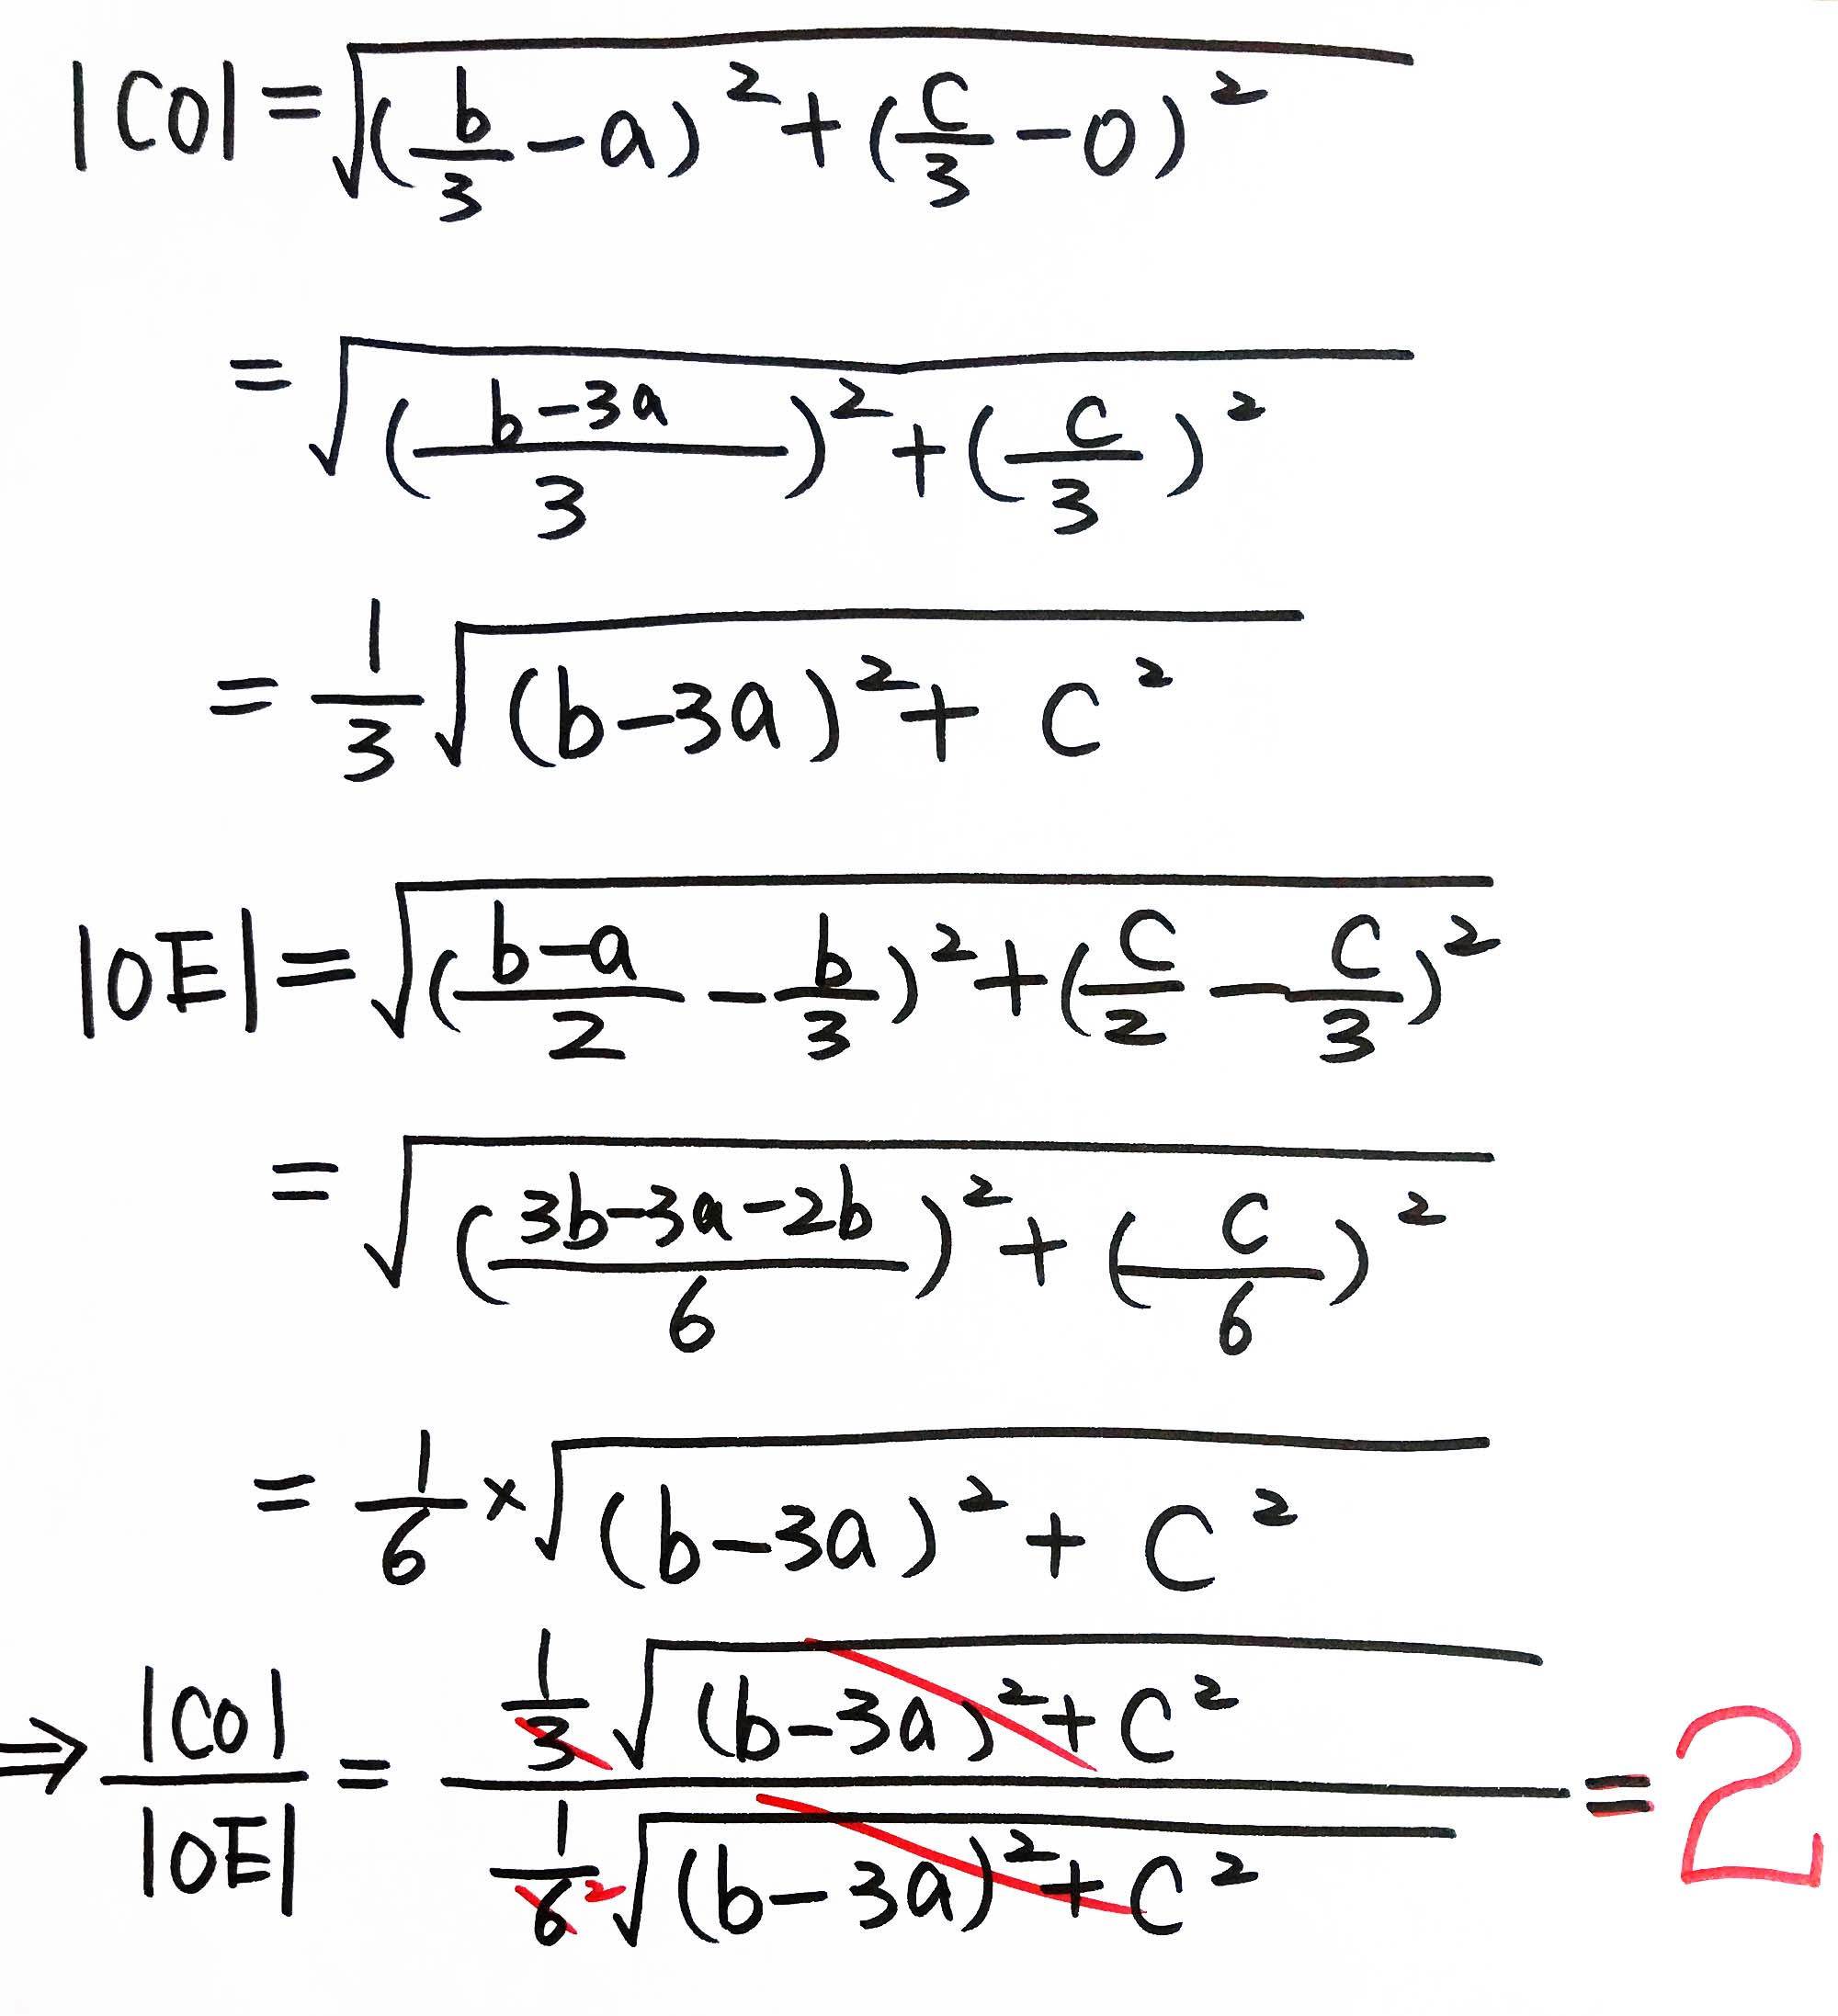 |CO| = √((b/3 − a)² + (c/3 − 0)²)
= √((b−3a/3)² + (c/3)²)
= 1/3 √((b−3a)² + c²)
|OE| = √((b−a/2 − b/3)² + (c/2 − c/3)²)
= √((3b−3a−2b/6)² + (c/6)²)
= 1/6 × √((b−3a)² + c²)
⇒ |CO|/|OE| = 1/3 √((b−3a)² + c²) / 1/6 2 √((b−3a)² + c²) = 2